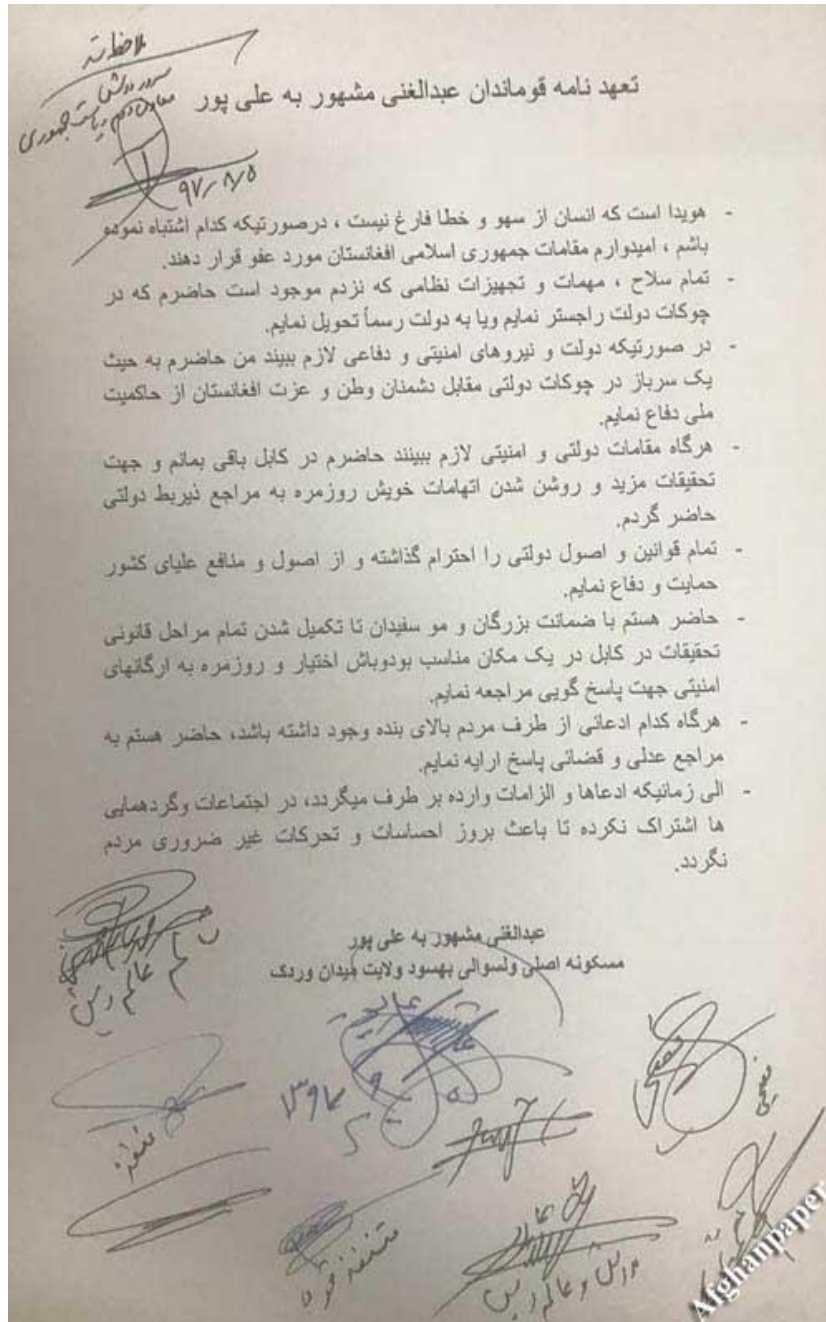 ملاحظه شد
سرور دانش
معاون دوم ریاست جمهوری
۹۷/۸/۵
تعهد نامه قوماندان عبدالغنی مشهور به علی پور
- هویدا است که انسان از سهو و خطا فارغ نیست ، درصورتیکه کدام اشتباه نموده
باشم ، امیدوارم مقامات جمهوری اسلامی افغانستان مورد عفو قرار دهند.
- تمام سلاح ، مهمات و تجهیزات نظامی که نزدم موجود است حاضرم که در
چوکات دولت راجستر نمایم ویا به دولت رسماً تحویل نمایم.
- در صورتیکه دولت و نیروهای امنیتی و دفاعی لازم ببیند من حاضرم به حیث
یک سرباز در چوکات دولتی مقابل دشمنان وطن و عزت افغانستان از حاکمیت
ملی دفاع نمایم.
- هرگاه مقامات دولتی و امنیتی لازم ببینند حاضرم در کابل باقی بمانم و جهت
تحقیقات مزید و روشن شدن اتهامات خویش روزمره به مراجع ذیربط دولتی
حاضر گردم.
- تمام قوانین و اصول دولتی را احترام گذاشته و از اصول و منافع علیای کشور
حمایت و دفاع نمایم.
- حاضر هستم با ضمانت بزرگان و مو سفیدان تا تکمیل شدن تمام مراحل قانونی
تحقیقات در کابل در یک مکان مناسب بودوباش اختیار و روزمره به ارگانهای
امنیتی جهت پاسخ گویی مراجعه نمایم.
- هرگاه کدام ادعائی از طرف مردم بالای بنده وجود داشته باشد، حاضر هستم به
مراجع عدلی و قضائی پاسخ ارایه نمایم.
- الی زمانیکه ادعاها و الزامات وارده بر طرف میگردد، در اجتماعات وگردهمایی
ها اشتراک نکرده تا باعث بروز احساسات و تحرکات غیر ضروری مردم
نگردد.
عبدالغنی مشهور به علی پور
مسکونه اصلی ولسوالی بهسود ولایت میدان وردک
Afghanpaper